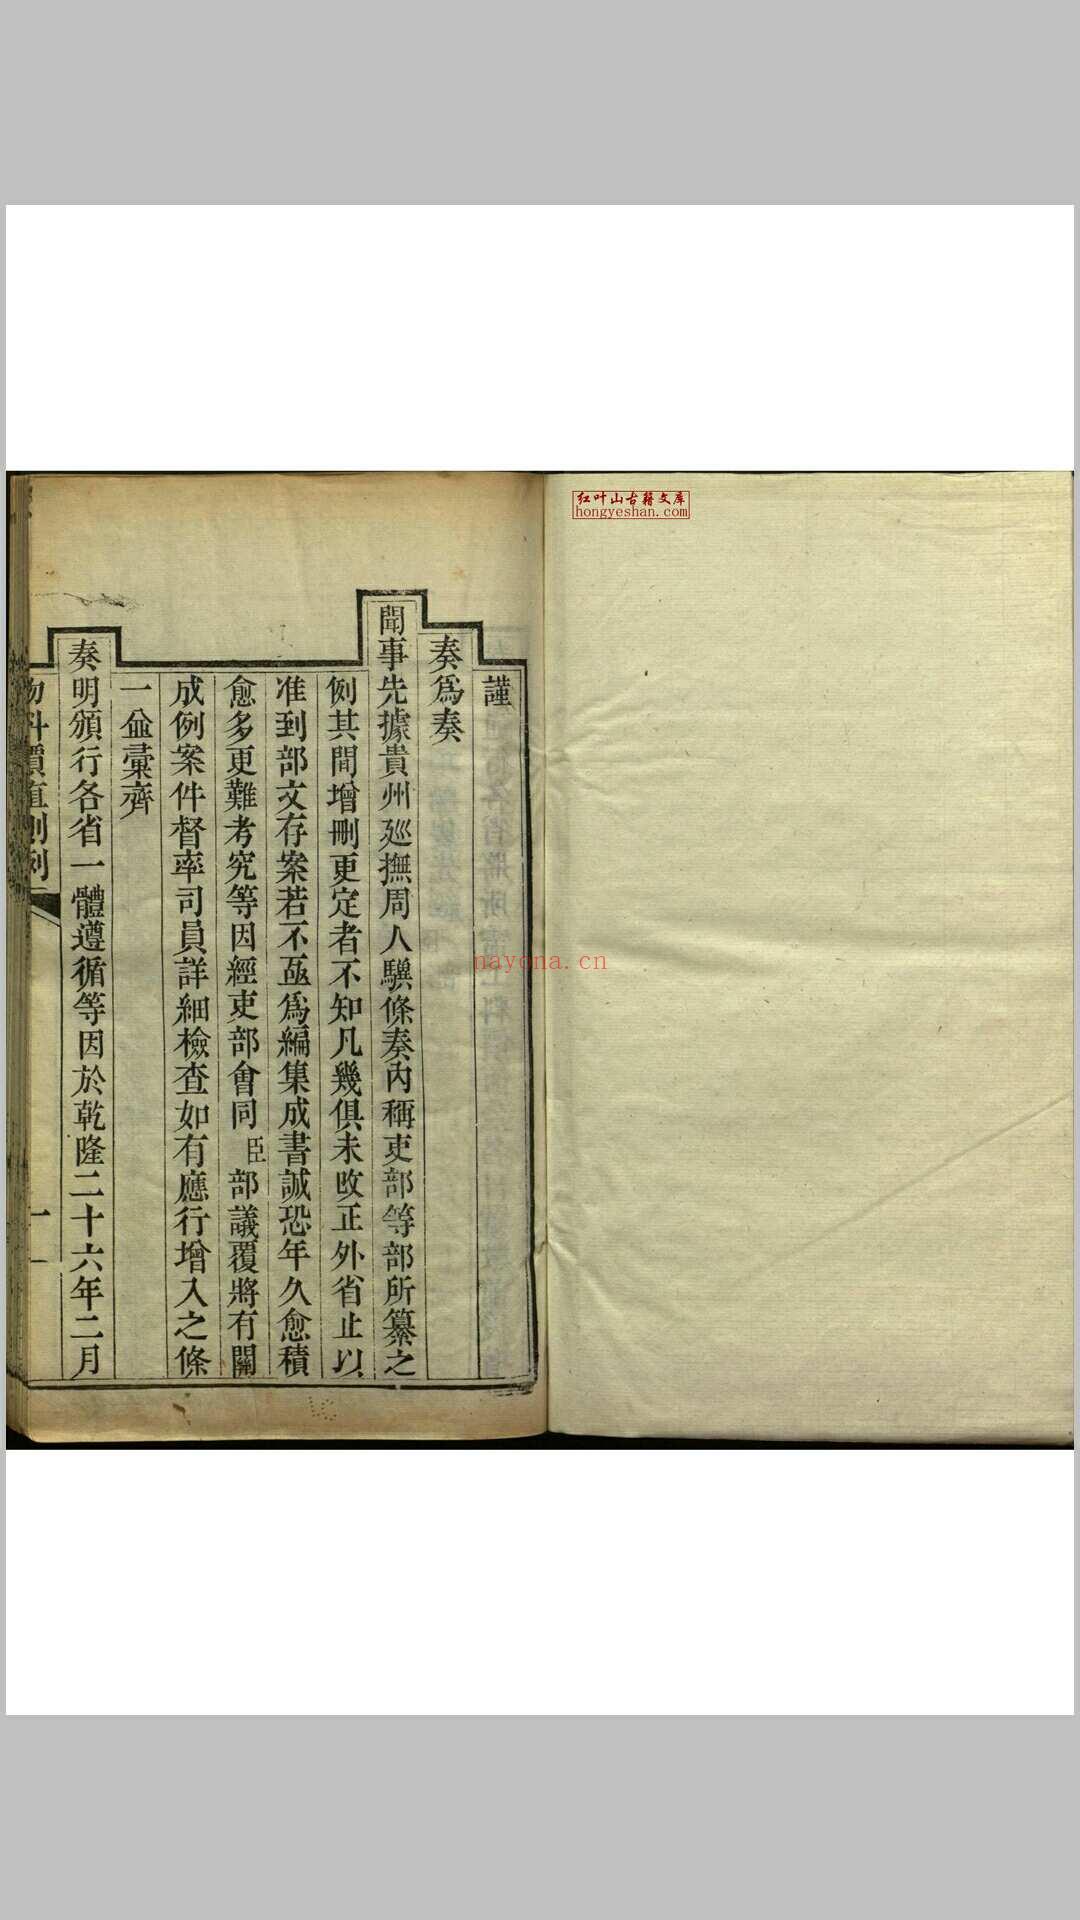 红叶山古籍文库
hongyeshan.com
nayona.cn
謹
奏爲奏
聞事先據貴州廵撫周人驥條奏內稱吏部等部所纂之
例其間增刪更定者不知凡幾俱未攺正外省止以
准到部文存案若不亟爲編集成書誠恐年久愈積
愈多更難考究等因經吏部會同臣部議覆將有關
成例案件督率司員詳細檢查如有應行增入之條
一並彚齊
奏明頒行各省一體遵循等因於乾隆二十六年二月
物料價直則例
一